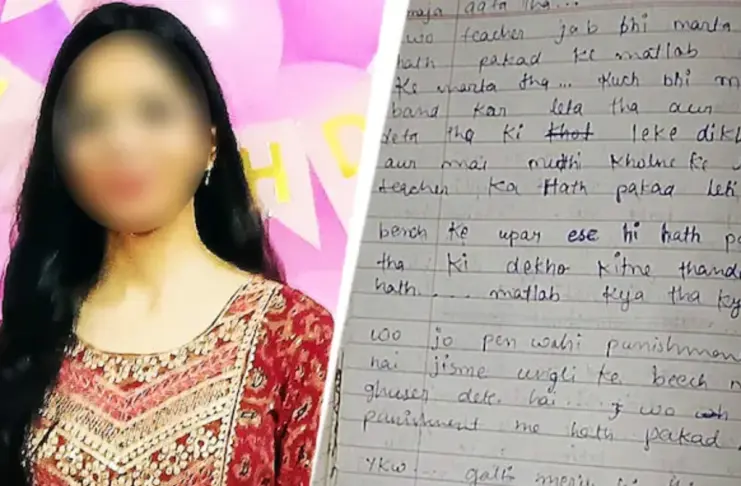 H D
maja aata tha...
wo teacher jab bhi marta
hath pakad ke matlab
ke marta tha... kuch bhi m
band kar leta tha aur
deta tha ki khot leke dikh
aur mai mutthi kholne ke
teacher ka Hath pakad leti
bench ke upar ese hi hath pa
tha ki dekho kitne thand
hath.... matlab kya tha ky
wo jo pen wahi punishmen
hai jisme ungli ke beech m
ghuser dete hai... wo
punishment me hath pakad
ykw... galti meri